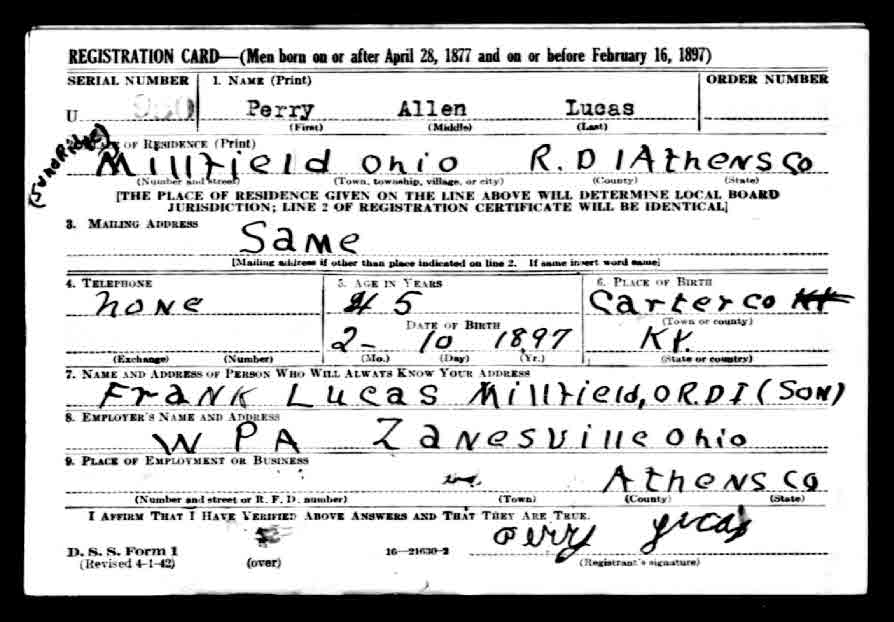 REGISTRATION CARD—(Men born on or after April 28, 1877 and on or before February 16, 1897)
SERIAL NUMBER 1. NAME (Print) ORDER NUMBER
U Perry Allen Lucas
(First) (Middle) (Last)
OF RESIDENCE (Print)
(SundRidge)
Millfield Ohio R.D 1 Athens Co
(Number and street) (Town, township, village, or city) (County) (State)
[THE PLACE OF RESIDENCE GIVEN ON THE LINE ABOVE WILL DETERMINE LOCAL BOARD
JURISDICTION; LINE 2 OF REGISTRATION CERTIFICATE WILL BE IDENTICAL]
3. MAILING ADDRESS
Same
[Mailing address if other than place indicated on line 2. If same insert word same]
4. TELEPHONE 5. AGE IN YEARS 6. PLACE OF BIRTH
none 45 Carter co
DATE OF BIRTH (Town or county)
2- 10 1897 Ky.
(Exchange) (Number) (Mo.) (Day) (Yr.) (State or country)
7. NAME AND ADDRESS OF PERSON WHO WILL ALWAYS KNOW YOUR ADDRESS
Frank Lucas Millfield, O R.D 1 (Son)
8. EMPLOYER'S NAME AND ADDRESS
W P A Zanesville Ohio
9. PLACE OF EMPLOYMENT OR BUSINESS
Athens Co
(Number and street or R. F. D. number) (Town) (County) (State)
I AFFIRM THAT I HAVE VERIFIED ABOVE ANSWERS AND THAT THEY ARE TRUE.
Perry Lucas
D. S. S. Form 1 16—21630-2
(Revised 4-1-42) (over) (Registrant's signature)